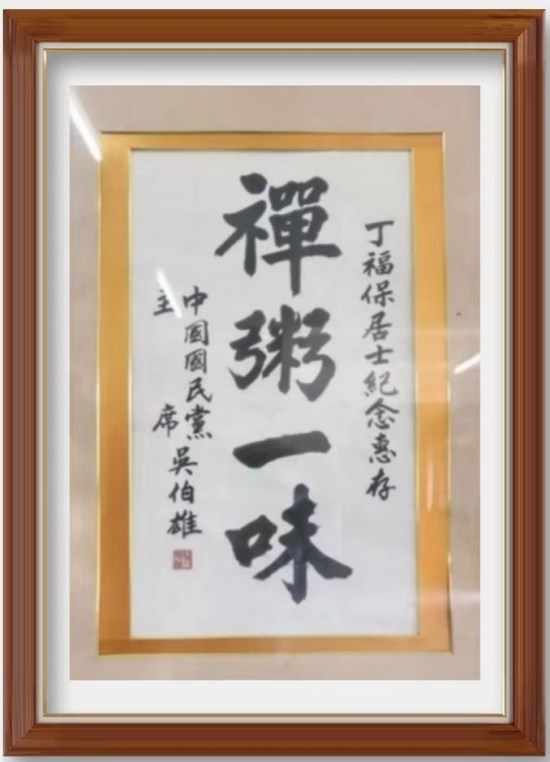 丁福保居士紀念惠存
禪粥一味
中國國民黨
主席
吳伯雄